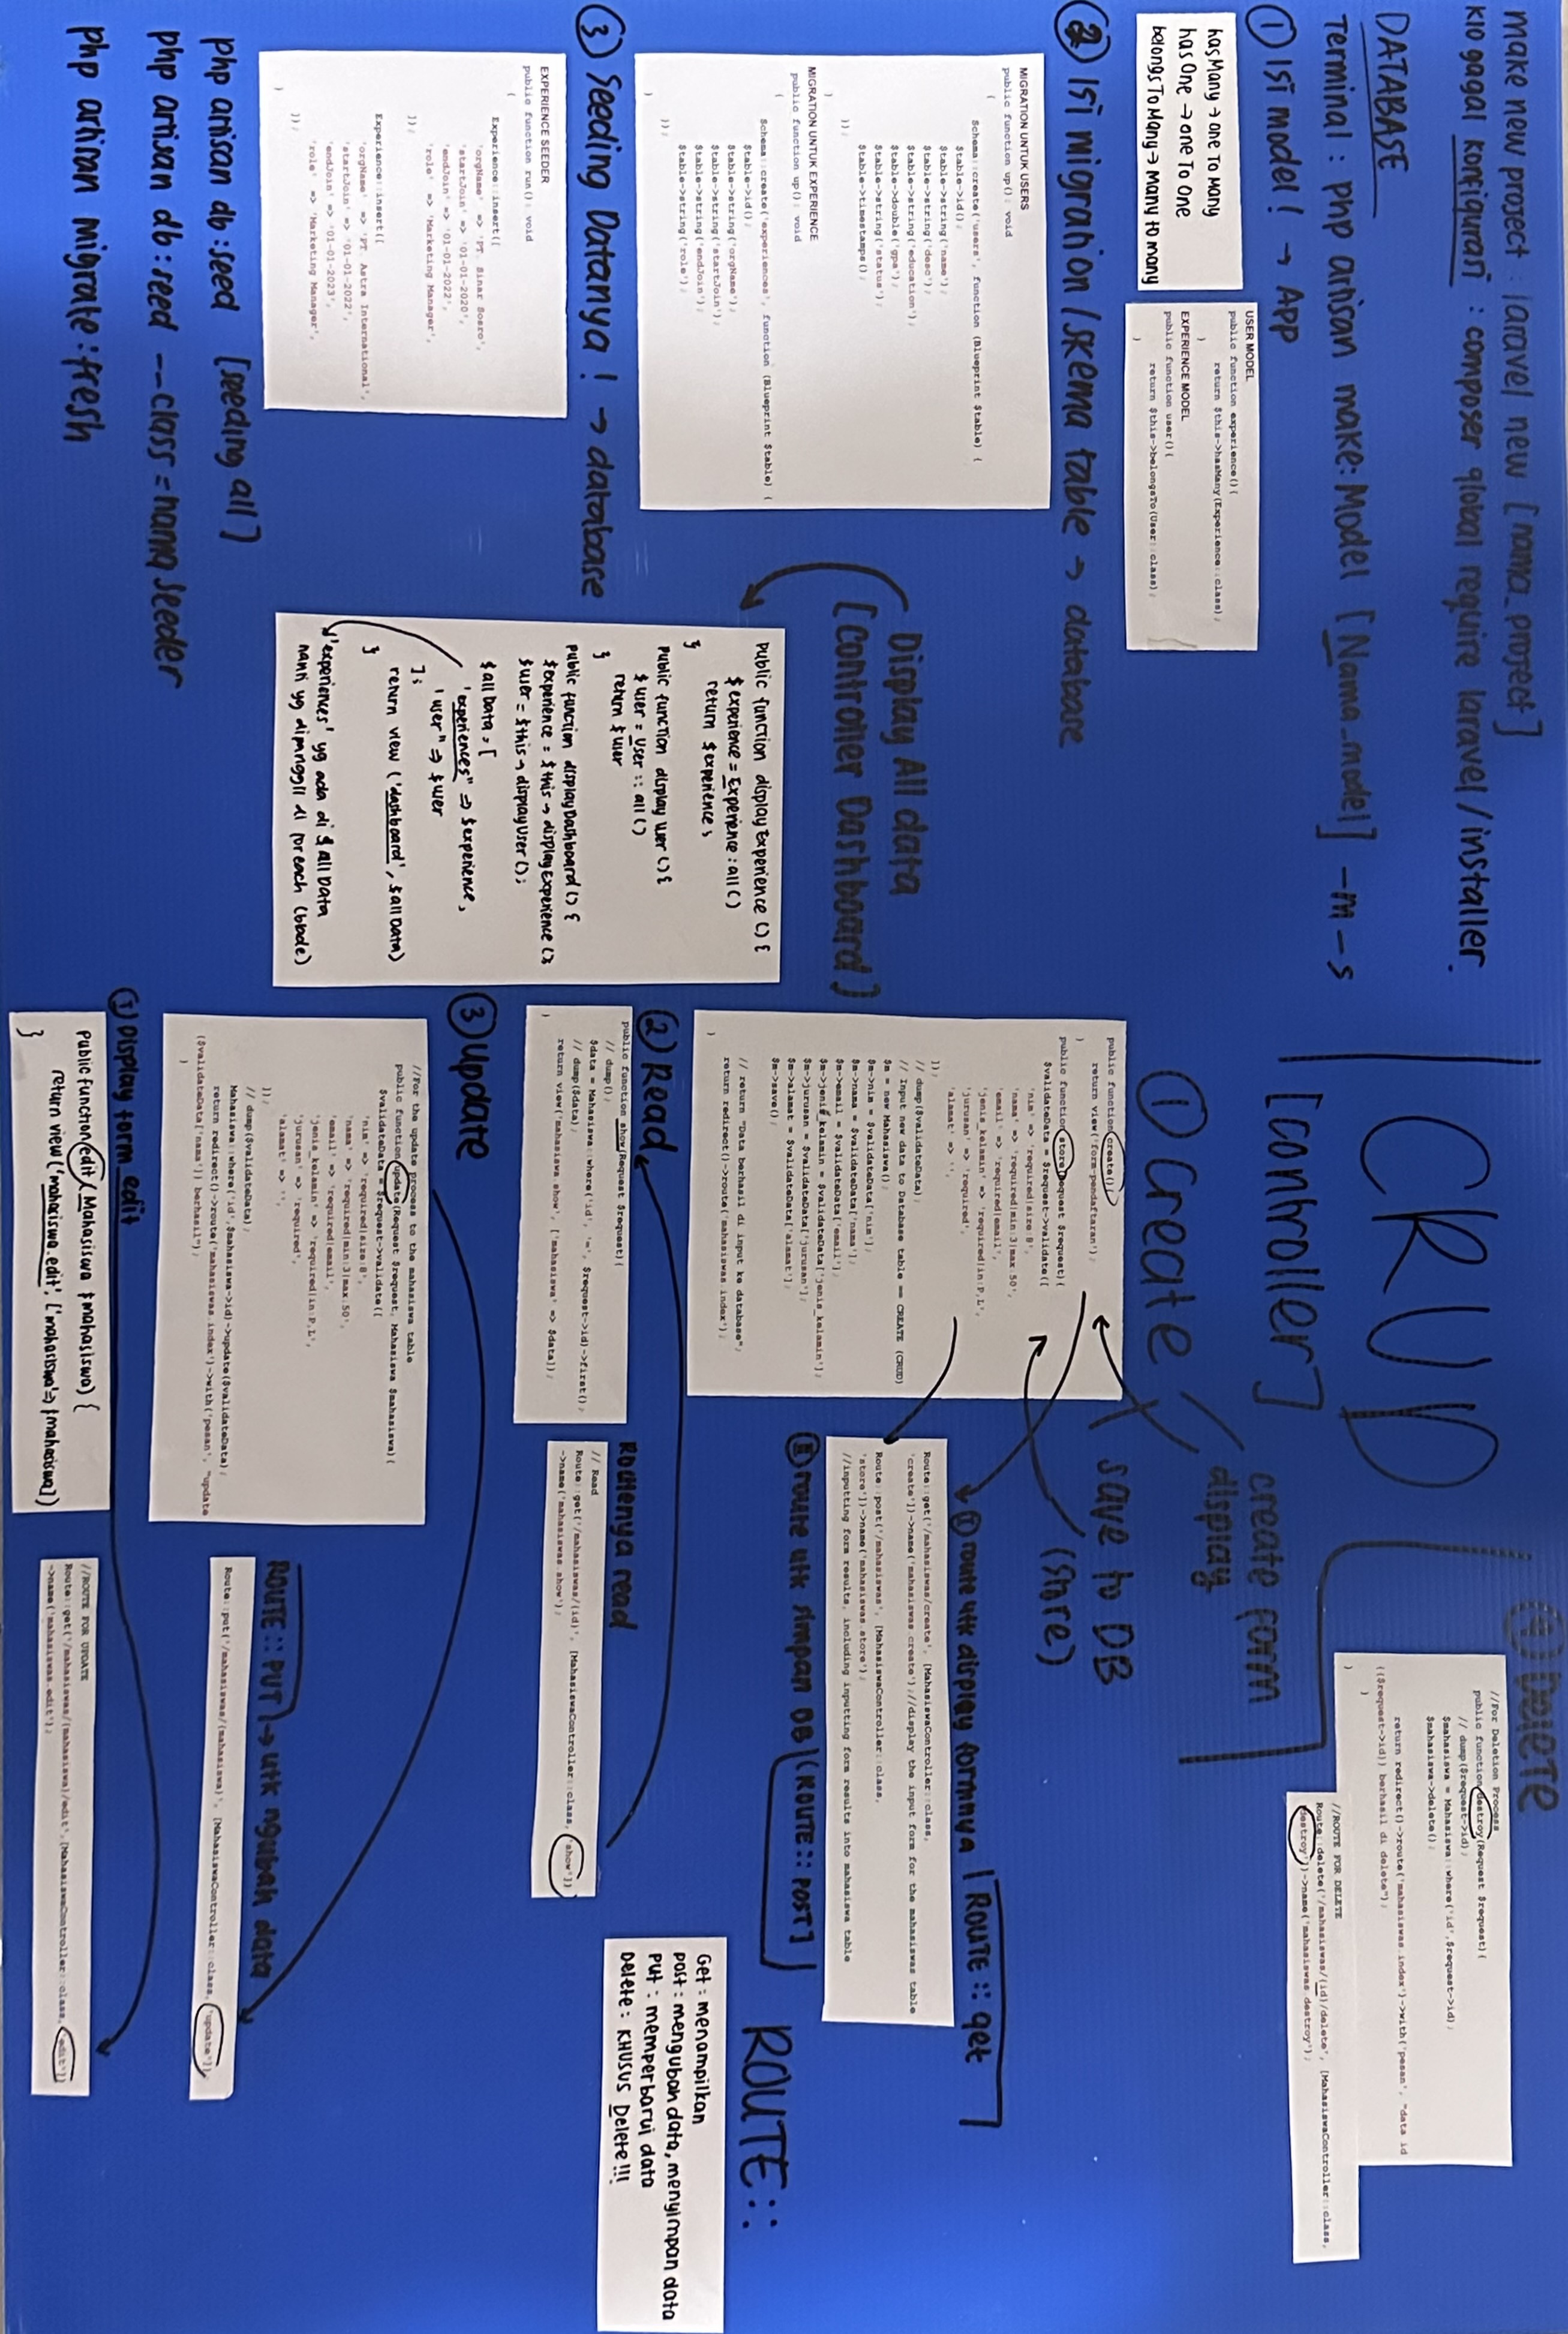 make new project : laravel new [nama_project]
klo gagal konfigurasi : composer global require laravel/installer.
DATABASE
Terminal : php artisan make:Model [Nama_model] -m -s
① Isi model! → App
hasMany → one To Many
has One → one To One
belongsToMany → Many to many
USER MODEL
public function experience(){
return $this->hasMany(Experience::class);
}
EXPERIENCE MODEL
public function user(){
return $this->belongsTo(User::class);
}
② Isi migration / skema table → database
MIGRATION UNTUK USERS
public function up(): void
{
Schema::create('users', function (Blueprint $table) {
$table->id();
$table->string('name');
$table->string('desc');
$table->string('education');
$table->double('gpa');
$table->string('status');
$table->timestamps();
});
}
MIGRATION UNTUK EXPERIENCE
public function up(): void
{
Schema::create('experiences', function (Blueprint $table) {
$table->id();
$table->string('orgName');
$table->string('startJoin');
$table->string('endJoin');
$table->string('role');
});
}
③ Seeding Datanya! → database
EXPERIENCE SEEDER
public function run(): void
{
Experience::insert([
'orgName' => 'PT. Sinar Sosro',
'startJoin' => '01-01-2020',
'endJoin' => '01-01-2022',
'role' => 'Marketing Manager',
]);
Experience::insert([
'orgName' => 'PT. Astra International',
'startJoin' => '01-01-2022',
'endJoin' => '01-01-2023',
'role' => 'Marketing Manager',
]);
}
php artisan db:seed [seeding all]
php artisan db:seed --class=namaSeeder
php artisan migrate:fresh
Display All data
[Controller Dashboard]
public function displayExperience () {
$experience = Experience : all ()
return $experience;
}
Public function display user () {
$user = User :: all ()
return $user
}
Public function displayDashboard () {
$experience = $this → displayExperience ();
$user = $this → displayUser ();
$allData = [
'experiences" => $experience,
'user" => $user
];
return view ('dashboard', $allData)
}
'experiences' yg ada di $allData
nanti yg dipanggil di foreach (blade)
CRUD
[Controller]
① Create
create form
display
save to DB
(store)
public function create(){
return view('form-pendaftaran');
}
public function store(Request $request){
$validateData = $request->validate([
'nim' => 'required|size:8',
'nama' => 'required|min:3|max:50',
'email' => 'required|email',
'jenis_kelamin' => 'required|in:P,L',
'jurusan' => 'required',
'alamat' => '',
]);
// dump($validateData);
// Input new data to Database table == CREATE (CRUD)
$m = new Mahasiswa();
$m->nim = $validateData['nim'];
$m->nama = $validateData['nama'];
$m->email = $validateData['email'];
$m->jenis_kelamin = $validateData['jenis_kelamin'];
$m->jurusan = $validateData['jurusan'];
$m->alamat = $validateData['alamat'];
$m->save();
// return "Data berhasil di input ke database";
return redirect()->route('mahasiswas.index');
}
① route utk display formnya [ROUTE :: get]
Route::get('/mahasiswas/create', [MahasiswaController::class,
'create'])->name('mahasiswas.create');//display the input form for the mahasiswas table
Route::post('/mahasiswas', [MahasiswaController::class,
'store'])->name('mahasiswas.store');
//inputting form results, including inputting form results into mahasiswa table
② route utk simpan DB [ROUTE :: POST]
② Read
public function show(Request $request){
// dump();
$data = Mahasiswa::where('id', '=', $request->id)->first();
// dump($data);
return view('mahasiswa.show', ['mahasiswa' => $data]);
}
Routenya read
// Read
Route::get('/mahasiswas/{id}', [MahasiswaController::class, 'show'])
->name('mahasiswas.show');
③ Update
//For the update process to the mahasiswa table
public function update(Request $request, Mahasiswa $mahasiswa){
$validateData = $request->validate([
'nim' => 'required|size:8',
'nama' => 'required|min:3|max:50',
'email' => 'required|email',
'jenis_kelamin' => 'required|in:P,L',
'jurusan' => 'required',
'alamat' => '',
]);
// dump($validateData);
Mahasiswa::where('id',$mahasiswa->id)->update($validateData);
return redirect()->route('mahasiswas.index')->with('pesan', "update
{$validateData['nama']} berhasil");
}
ROUTE :: PUT → utk ngubah data
Route::put('/mahasiswas/{mahasiswa}', [MahasiswaController::class, 'update'])
① Display form edit
Public function edit (Mahasiswa $mahasiswa) {
return view ('mahasiswa.edit', ['mahasiswa' => $mahasiswa])
}
//ROUTE FOR UPDATE
Route::get('/mahasiswas/{mahasiswa}/edit',[MahasiswaController::class, 'edit'])
->name('mahasiswas.edit');
④ Delete
//For Deletion Process
public function destroy(Request $request){
// dump($request->id);
$mahasiswa = Mahasiswa::where('id',$request->id);
$mahasiswa->delete();
return redirect()->route('mahasiswas.index')->with('pesan', "data id
{$request->id} berhasil di delete");
}
//ROUTE FOR DELETE
Route::delete('/mahasiswas/{id}/delete', [MahasiswaController::class,
'destroy'])->name('mahasiswas.destroy');
ROUTE ::
Get : menampilkan
post : mengubah data, menyimpan data
put : memperbarui data
Delete : KHUSUS Delete!!!